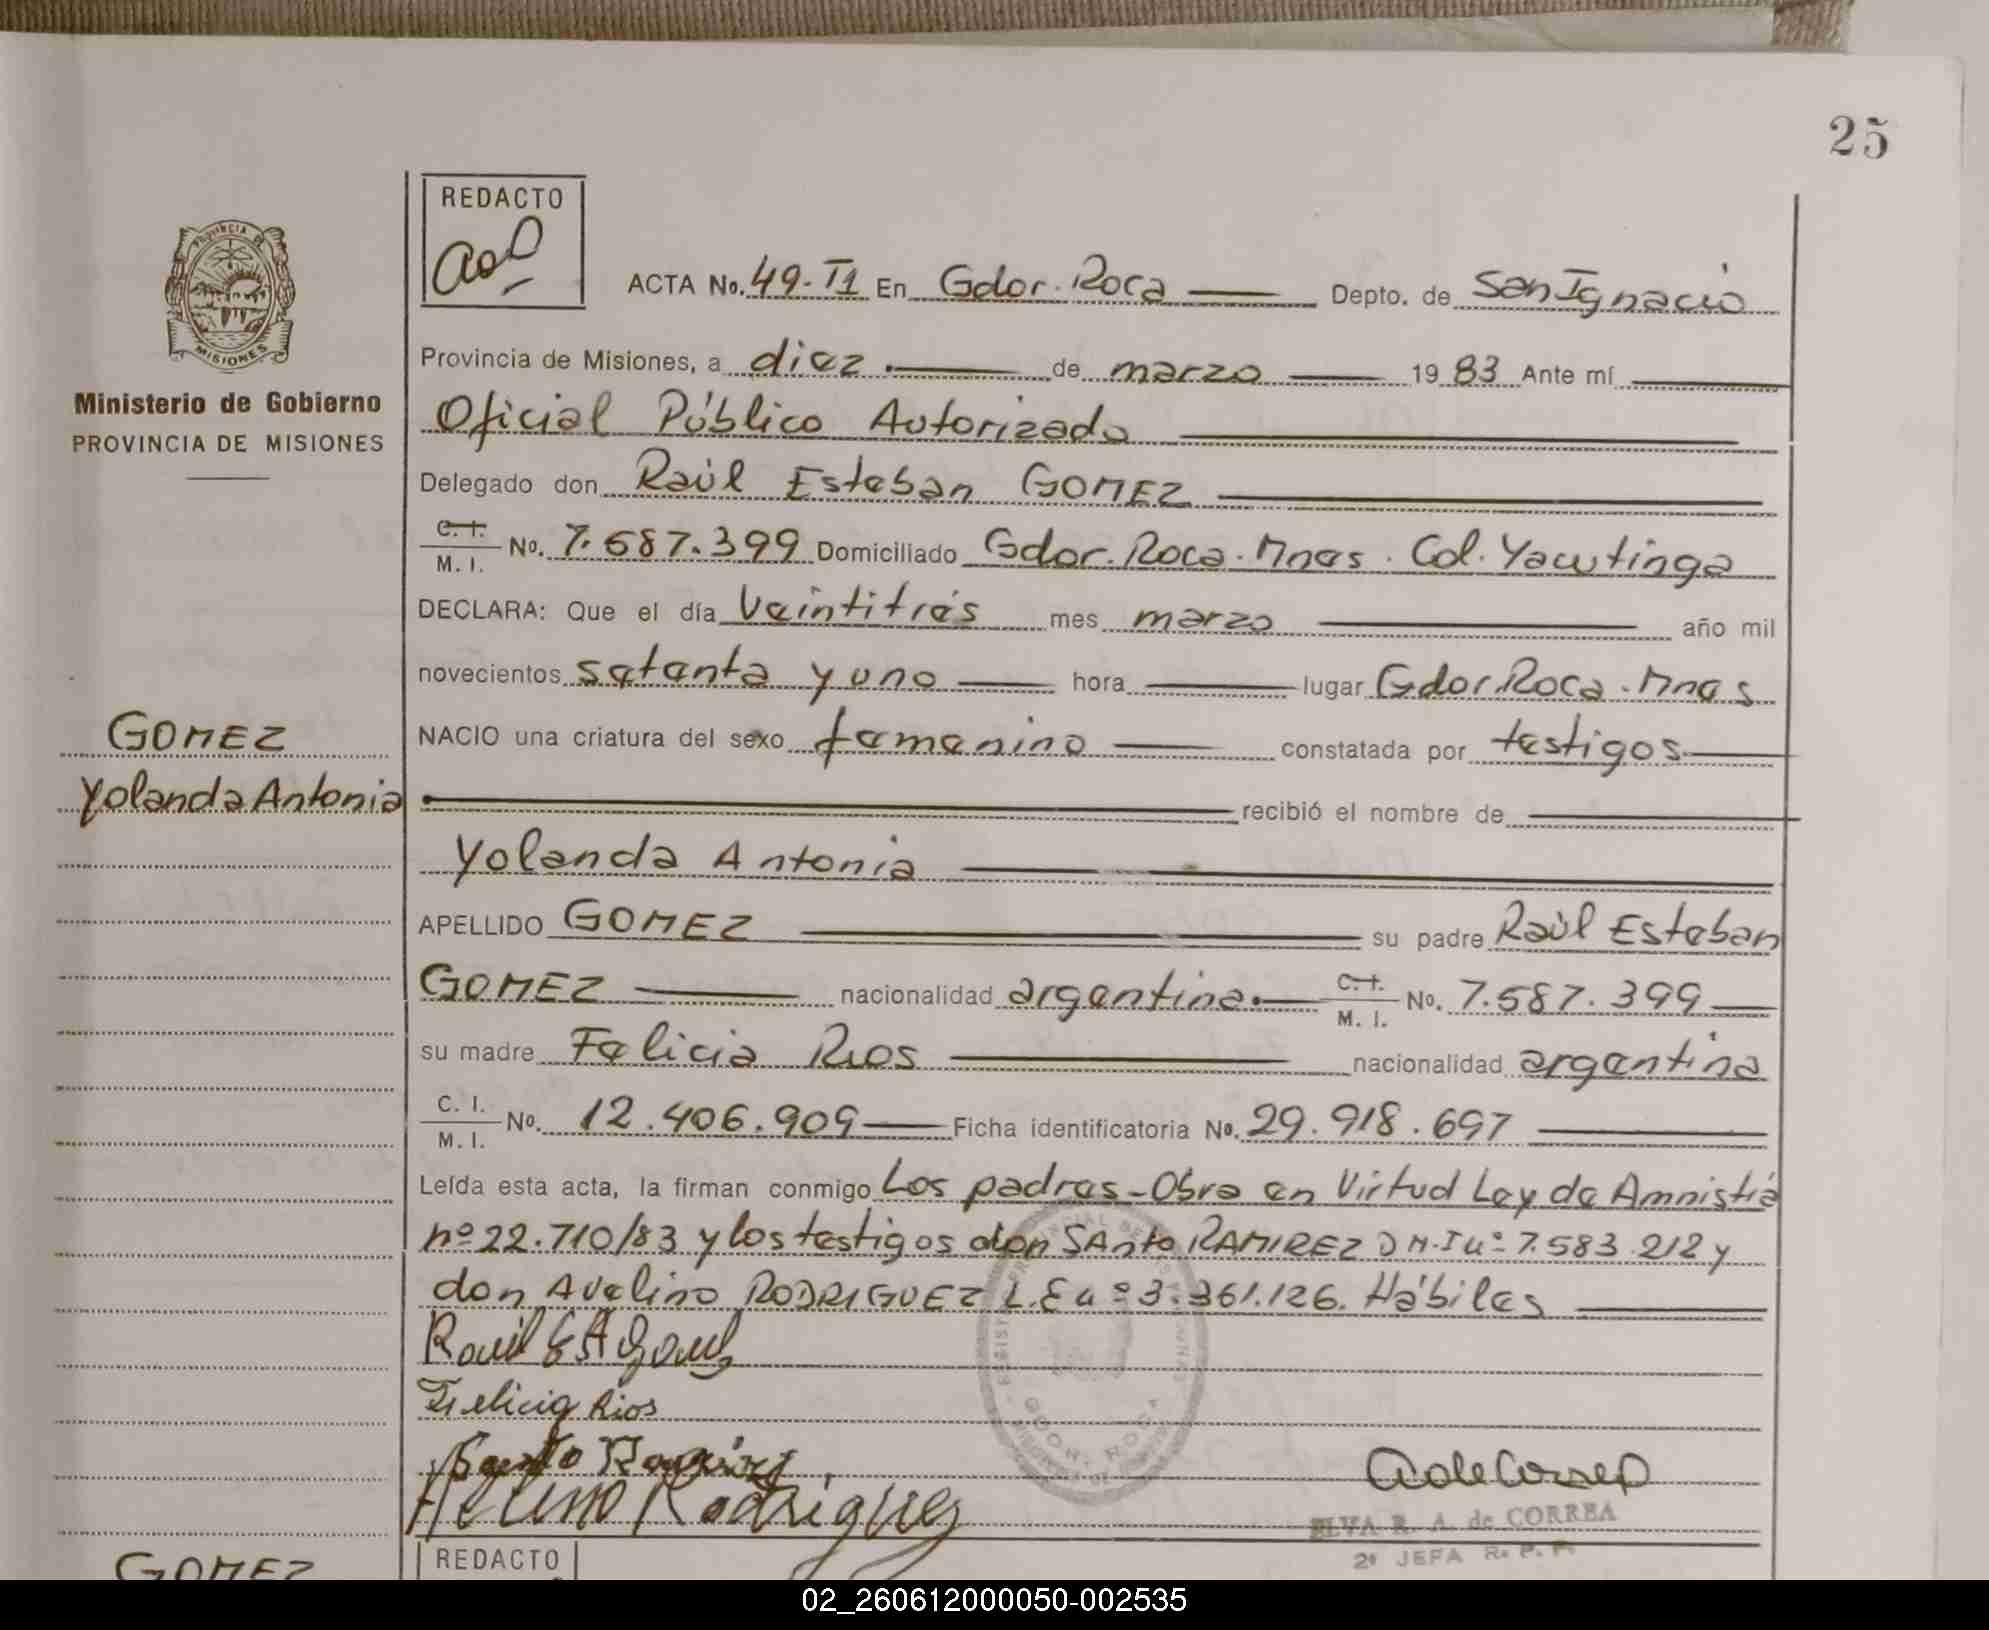 25
REDACTO
PROVINCIA DE
MISIONES
ACTA No. 49-T1 En Gdor. Roca Depto. de San Ignacio
Provincia de Misiones, a diez de marzo 1983 Ante mí
Ministerio de Gobierno
PROVINCIA DE MISIONES
Oficial Público Autorizado
Delegado don Raúl Esteban GOMEZ
C. I. M. I. No. 7.587.399 Domiciliado Gdor. Roca. Mnes. Col. Yacutinga
DECLARA: Que el día veintitrés mes marzo año mil
novecientos setenta y uno hora lugar Gdor Roca. Mnes
GOMEZ
NACIO una criatura del sexo femenino constatada por testigos
Yolanda Antonia
recibió el nombre de
Yolanda Antonia
APELLIDO GOMEZ su padre Raúl Esteban
GOMEZ nacionalidad argentina. C. I. M. I. No. 7.587.399
su madre Felicia Rios nacionalidad argentina
C. I. M. I. No. 12.406.909 Ficha identificatoria No. 29.918.697
Leída esta acta, la firman conmigo Los padres-Obra en Virtud Ley de Amnistía
nº 22.710/83 y los testigos don SAnto RAMIREZ D N.I nº 7.583.212 y
don Avelino RODRIGUEZ L.E nº 3.361.126. Hábiles
Raúl Est Gomez
Felicia Rios
Santo Ramirez
Avelino Rodriguez
GDOR. ROCA
A de Correa
ELVA R. A. de CORREA
2º JEFA R. P. P.
GOMEZ
REDACTO
02_260612000050-002535